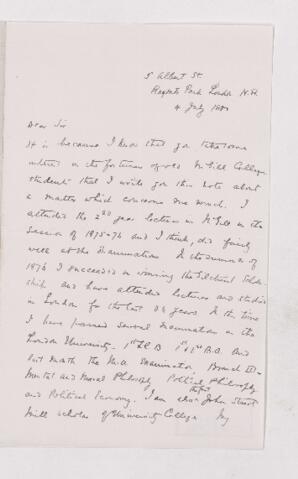 5 Albert St.
Regents Park London N.W.
4 July 1880
Dear Sir
It is because I know that you take some
interest in the fortunes of old McGill College
students that I write you this note about
a matter which concerns me much. I
attended the 2nd year lectures in McGill in the
session of 1875-76 and I think, did fairly
well at the Examinations. In the summer of
1876 I succeeded in winning the Gilchrist Schol-
ship and have attended lectures and studied
in London for the last years. In the time
I have passed several Examinations in the
London University. 1st B.A. And
last month the M.A. Examination, Branch III-
Mental and Moral Philosophy, Political Philosophy
and Political Economy. I am also the first John Stuart
Mill scholar of University College. My